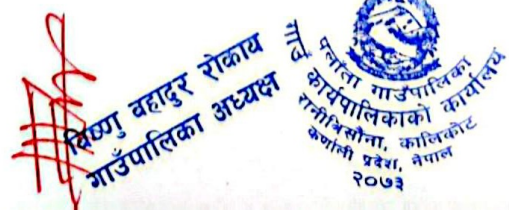 विष्णु वहादुर रोकाय
गाउँपालिका अध्यक्ष
पलाँता गाउँपालिका
गाउँ कार्यपालिकाको कार्यालय
रानीभिसौना, कालिकोट
कर्णाली प्रदेश, नेपाल
२०७३